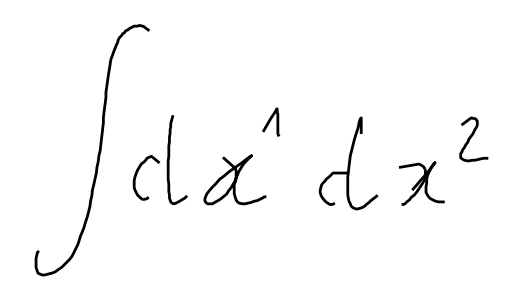 ∫dx¹ dx²